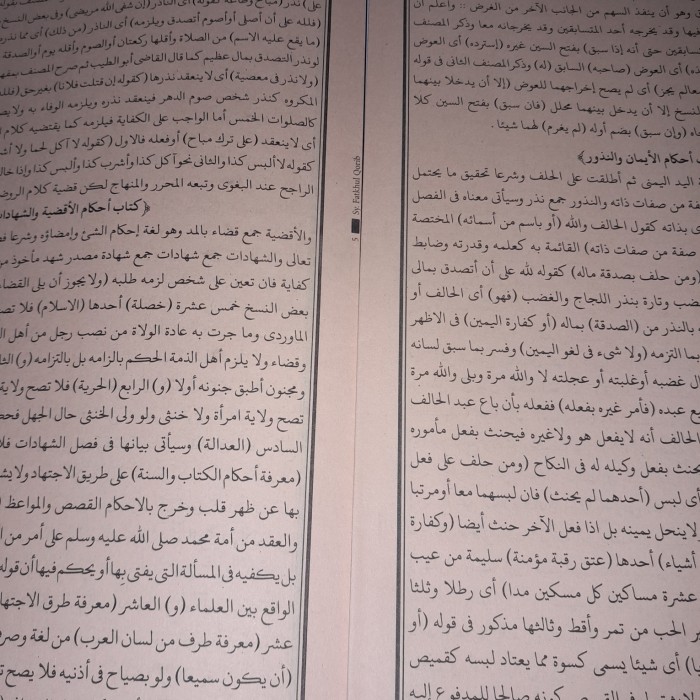 وهو أن ينفذ السهم من الجانب الآخر من الغرض :: واعلم أن
فيها وقد يخرجه أحد المتسابقين وقد يخرجانه معا وذكر المصنف
سابقين حتى أنه إذا سبق) بفتح السين غيره (إسترده) أى العوض
أى العوض (صاحبه) السابق (له) وذكر المصنف الثانى فى قوله
معالم يجز) أى لم يصح إخراجهما للعوض (إلا أن يدخلا بينهما
النسخ إلا أن يدخل بينهما محلل (فان سبق) بفتح السين كلا
(وإن سبق) بضم أوله (لم يغرم) لهما شيئا .
أحكام الأيمان والنذور﴾
اليد اليمنى ثم أطلقت على الحلف وشرعا تحقيق ما يحتمل
صفة من صفات ذاته والنذور جمع نذر وسيأتى معناه فى الفصل
بذاته كقول الحالف والله (أو باسم من أسمائه) المختصة
صفة من صفات ذاته) القائمة به كعلمه وقدرته وضابط
(ومن حلف بصدقة ماله) كقوله لله على أن أتصدق بمالى
وتارة بنذر اللجاج والغضب (فهو) أى الحالف أو
بالنذر من (الصدقة) بماله (أو كفارة اليمين) فى الاظهر
بما التزمه (ولا شىء فى لغو اليمين) وفسر بما سبق لسانه
غضبه أو غلبته أو عجلته لا والله مرة وبلى والله مرة
عبده (فأمر غيره بفعله) ففعله بأن باع عبد الحالف
الحالف أنه لا يفعل هو ولا غيره فيحنث بفعل مأموره
يحنث بفعل وكيله له فى النكاح (ومن حلف على فعل
أى لبس (أحدهما لم يحنث) فان لبسهما معا أو مرتبا
ولا ينحل يمينه بل اذا فعل الآخر حنث أيضا (وكفارة
أشياء) أحدها (عتق رقبة مؤمنة) سليمة من عيب
عشرة مساكين كل مسكين مدا) أى رطلا وثلثا
الحب من تمر وأقط وثالثها مذكور فى قوله (أو
أى شيئا يسمى كسوة مما يعتاد لبسه كقميص
كونه صالحا للمدفوع إليه
5 Sy. Fatkhul Qorib
(فلله على أن أصلى أو أصوم أتصدق ويلزمه) أى الناذر (من ذلك) أى مما نذره
(ما يقع عليه الاسم) من الصلاة وأقلها ركعتان أو الصوم وأقله يوم أو الصدقة
لو نذر التصدق بمال عظيم كما قال القاضى أبو الطيب ثم صرح المصنف
(ولا نذر فى معصية) أى لا ينعقد نذرها (كقوله إن قتلت فلانا) بغير حق
المكروه كنذر شخص صوم الدهر فينعقد نذره ويلزمه الوفاء به ولا
كالصلوات الخمس أما الواجب على الكفاية فيلزمه كما يقتضيه كلام
أى لا ينعقد (على ترك مباح) أو فعله فالاول (كقوله لا آكل لحما ولا
كقوله لا ألبس كذا والثانى نحو آكل كذا وأشرب كذا وألبس كذا وإذا
الراجح عند البغوى وتبعه المحرر والمنهاج لكن قضية كلام
﴿كتاب أحكام الأقضية والشهادات
والأقضية جمع قضاء بالمد وهو لغة إحكام الشئ وإمضاؤه وشرعا
تعالى والشهادات جمع شهادات جمع شهادة مصدر شهد مأخوذ من
كفاية فان تعين على شخص لزمه طلبه (ولا يجوز أن يلى القضاء
بعض النسخ خمس عشرة (خصلة) أحدها (الاسلام) فلا تصح
الماوردى وما جرت به عادة الولاة من نصب رجل من أهل
وقضاء ولا يلزم أهل الذمة الحكم بالزامه بل بالتزامه (و)
ومجنون أطبق جنونه أولا (و) الرابع (الحرية) فلا تصح ولاية
تصح ولاية امرأة ولا خنثى ولو ولى الخنثى حال الجهل
السادس (العدالة) وسيأتى بيانها فى فصل الشهادات
(معرفة أحكام الكتاب والسنة) على طريق الاجتهاد ولا
بها عن ظهر قلب وخرج بالاحكام القصص والمواعظ
والعقد من أمة محمد صلى الله عليه وسلم على أمر من
بل يكفيه فى المسألة التى يفتى بها أو يحكم فيها أن قوله
الواقع بين العلماء (و) العاشر (معرفة طرق الاجتهاد
عشر (معرفة طرف من لسان العرب) من لغة وصرف
(أن يكون سميعا) ولو بصياح فى أذنيه فلا يصح